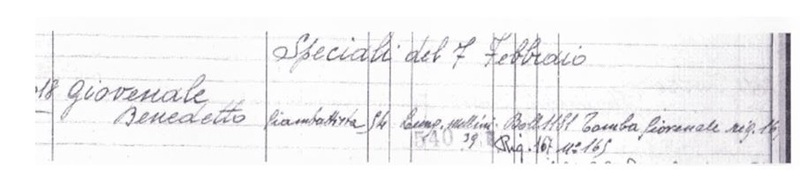 Speciali del 7 Febbraio
18 Giovenale
Benedetto Giambattista 54 Lung. Mellini. Boll 1151 Tomba Giovenale rig. 16
39 Pag. 167 n° 165
540